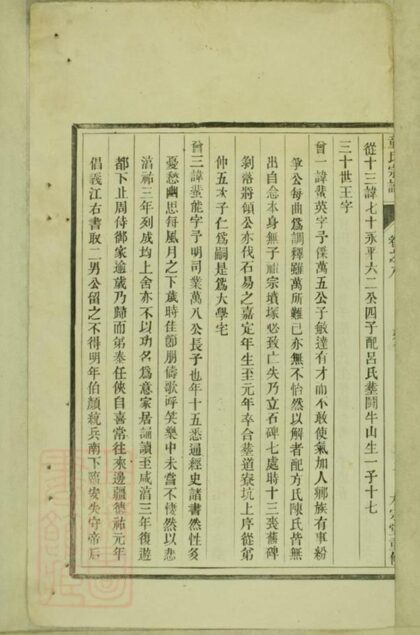 從十三諱七十永平六二丞四子配呂氏葬鬪牛山生一子十七
三十世王字
曾一諱蜚英字予傑萬五公子敏達有才而不敢使氣加人鄉族有事粉
筆公每曲為調釋雖萬所難已亦無不怡然以解者配方氏陳氏皆無
出自念本身無子祖宗墳塚必致亡失乃立石碑七處時十三喪舊碑
剝落將領公亦伐石易之嘉定年生至元年卒合葬道寮坑上序從弟
仲五次子仁為嗣是為大學宅
曾三諱蜚能字予明司業萬八公長子也年十五悉通經史諸書然性多
憂愁幽思每風月之下歲時佳節朋儔歌呼笑樂中未嘗不悽然以悲
淯祐三年列成均上舍亦不以功名為意家居誦讀至咸淯三年復遊
都下止周侍御家逾歲乃歸而第泰任俠自喜常往來邊疆德祐元年
倡義江右書取二男公留之不得明年伯顏統兵南下臨安失守帝后